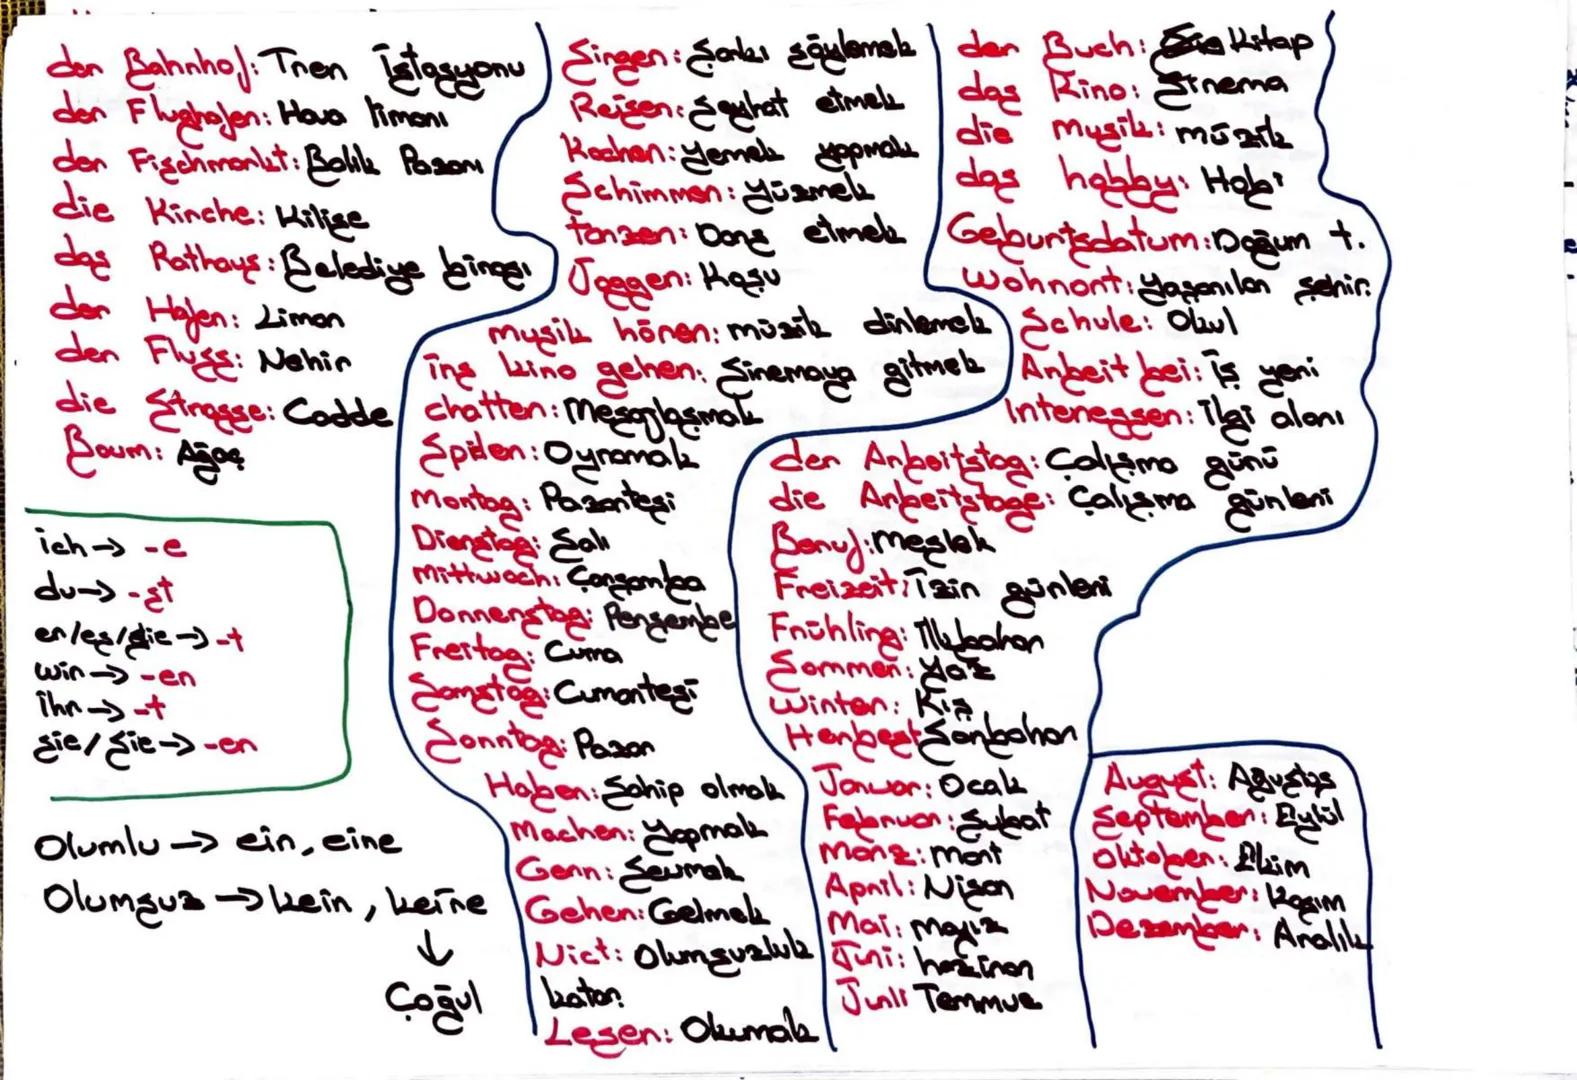 der Bahnhof: Tren İstasyonu
der Flughafen: Hava limanı
der Fischmarkt: Balık Pazarı
die Kirche: Kilise
das Rathaus: Belediye binası
der Hafen: Liman
der Fluss: Nehir
die Strasse: Cadde
Baum: Ağaç
ich → -e
du → -st
er/es/sie → -t
wir → -en
ihr → -t
sie/Sie → -en
Olumlu → ein, eine
Olumsuz → kein, keine
↓
Çoğul
Singen: Şarkı söylemek
Reisen: Seyhat etmek
Kochen: Yemek yapmak
Schimmen: Yüzmek
tanzen: Dans etmek
Joggen: Koşu
musik hören: müzik dinlemek
ins kino gehen: Sinemaya gitmek
chatten: Mesajlaşmak
Spielen: Oynamak
Montag: Pazartesi
Dienstag: Salı
Mittwoch: Çarşamba
Donnerstag: Perşembe
Freitag: Cuma
Samstag: Cumartesi
Sonntag: Pazar
Haben: Sahip olmak
Machen: Yapmak
Gern: Sevmek
Gehen: Gelmek
Nict: Olumsuzluk
katar
Lesen: Okumak
der Buch: Kitap
das Kino: Sinema
die musik: müzik
das hobby: Hobi
Geburtsdatum: Doğum t.
Wohnort: Yaşanılan şehir
Schule: Okul
Arbeit bei: İş yeri
Interessen: İlgi alanı
der Arbeitstag: Çalışma günü
die Arbeitstage: Çalışma günleri
Beruf: Meslek
Freizeit: İzin günleri
Frühling: İlkbahar
Sommer: Yaz
Winter: Kış
Herbest Sonbahar
Januar: Ocak
Februar: Şubat
März: mart
April: Nisan
Mai: mayız
Juni: haziran
Junli Temmuz
August: Ağustos
September: Eylül
Oktober: Ekim
November: Kasım
Dezember: Aralık